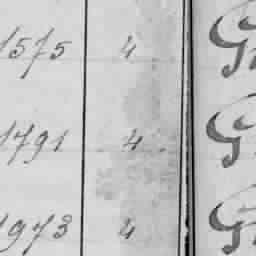 1575 4
1791 4
1973 4